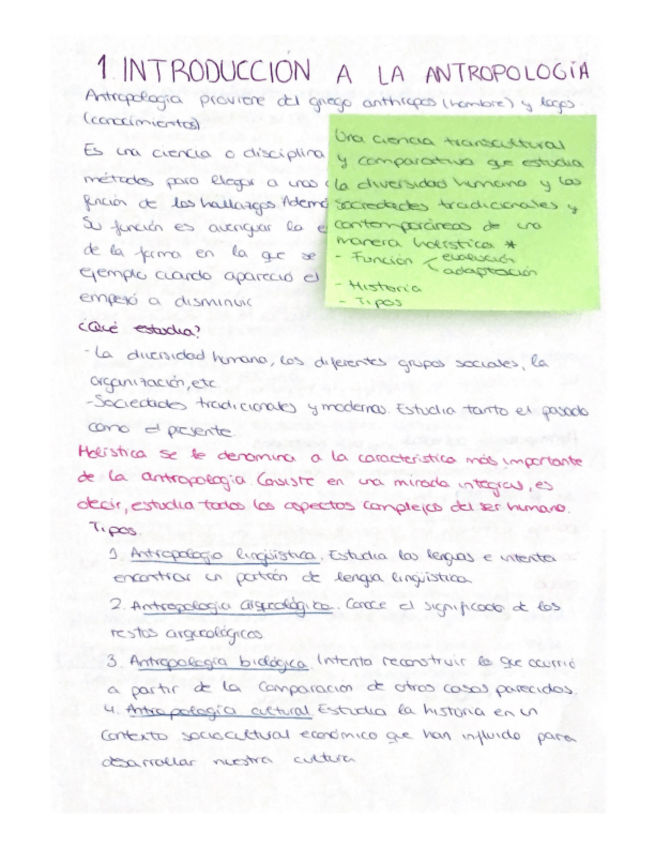 1. INTRODUCCIÓN A LA ANTROPOLOGÍA
Antropología proviene del griego anthropos (hombre) y logos
(conocimientos)
Es una ciencia o disciplina
métodos para llegar a unos
función de los hallazgos. Ademá
Su función es averiguar la e
de la forma en la que se
ejemplo cuando apareció el
empezó a disminuir
Una ciencia transcultural
y comparativa que estudia
la diversidad humana y las
sociedades tradicionales y
contemporáneas de una
manera holística *
- Función < evolución
adaptación
- Historia
- Tipos
¿Qué estudia?
-La diversidad humana, los diferentes grupos sociales, la
organización, etc.
-Sociedades tradicionales y modernas. Estudia tanto el pasado
como el presente.
Holística se le denomina a la característica más importante
de la antropología. Consiste en una mirada integral, es
decir, estudia todos los aspectos complejos del ser humano.
Tipos.
1. Antropología lingüística. Estudia las lenguas e intenta
encontrar un patrón de lengua lingüística.
2. Antropología arqueológica. Conoce el significado de los
restos arqueológicos
3. Antropología biológica. Intenta reconstruir lo que ocurrió
a partir de la comparación de otros casos parecidos.
4. Antropología cultural. Estudia la historia en un
contexto sociocultural económico que han influido para
desarrollar nuestra cultura